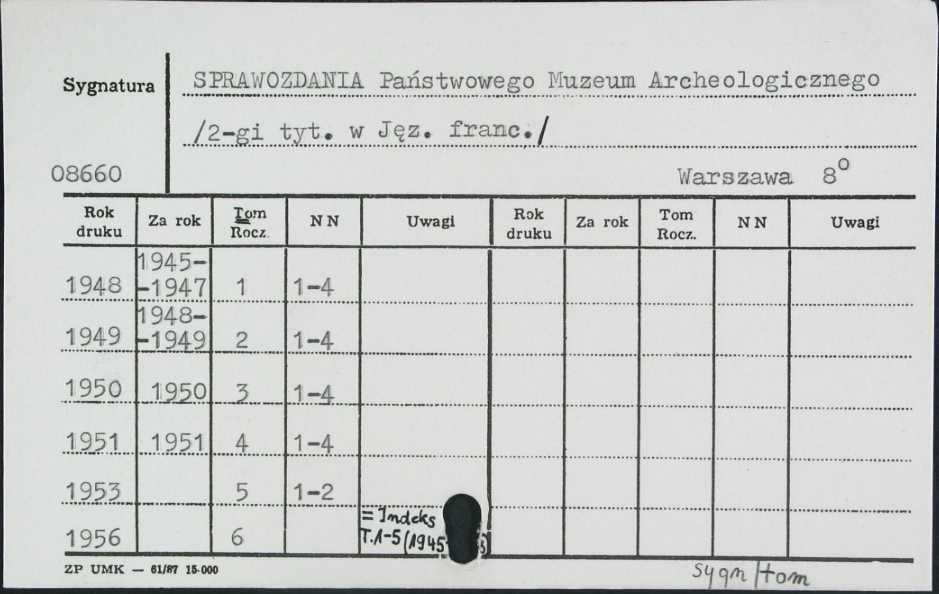 Sygnatura SPRAWOZDANIA Państwowego Muzeum Archeologicznego
/2-gi tyt. w Jęz. franc./
08660 Warszawa 8º
Rok druku Za rok Tom Rocz. NN Uwagi Rok druku Za rok Tom Rocz. NN Uwagi
1948 1945-
-1947 1 1-4
1949 1948-
-1949 2 1-4
1950 1950 3 1-4
1951 1951 4 1-4
1953 5 1-2
1956 6 = Indeks
T.1-5 (1945
ZP UMK — 61/87 15-000
sygn/tom